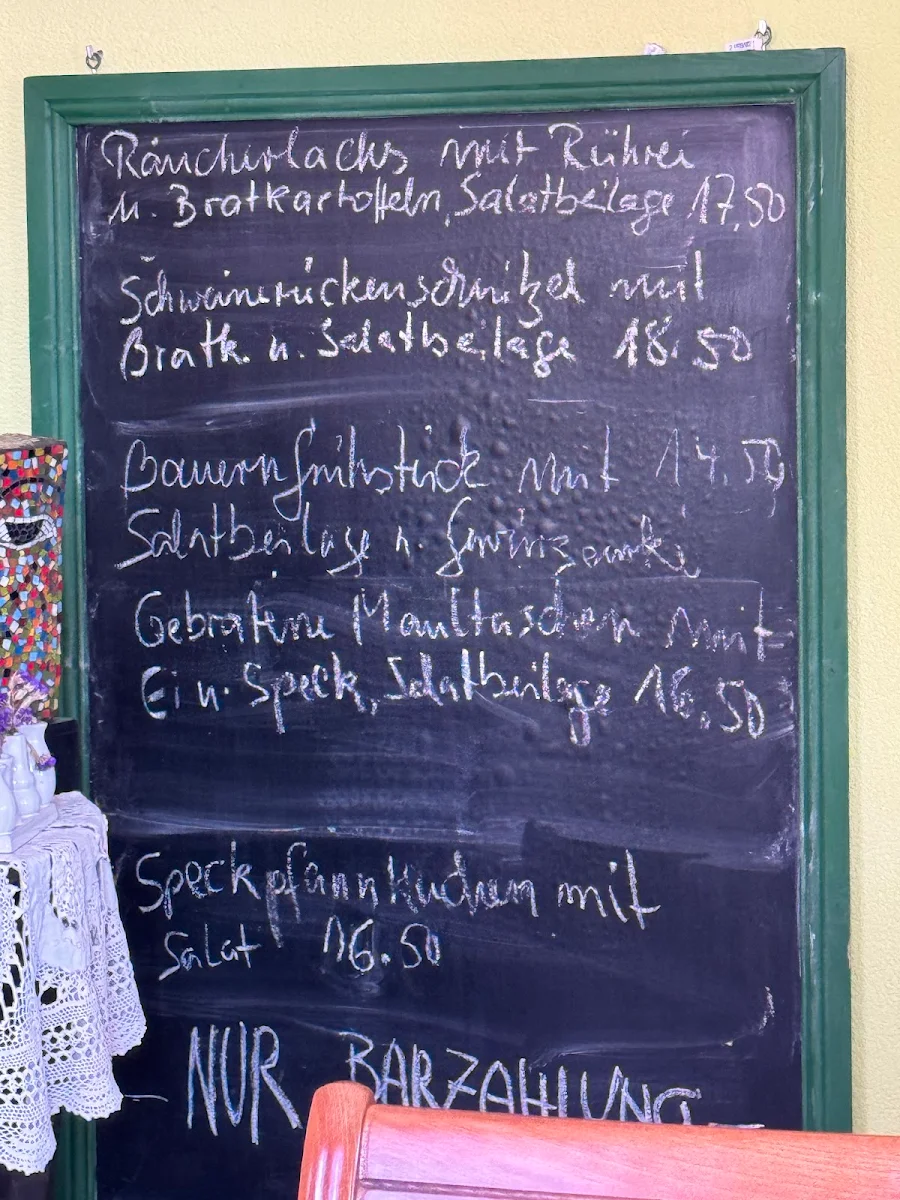 Räucherlachs mit Rührei
u. Bratkartoffeln, Salatbeilage 17,50
Schweinerückenschnitzel mit
Bratk. u. Salatbeilage 18.50
Bauernfrühstück mit 14.50
Salatbeilage u. Gewürzgurke
Gebratene Maultaschen mit
Ei u. Speck, Salatbeilage 16.50
Speckpfannkuchen mit
Salat 16.50
NUR BARZAHLUNG